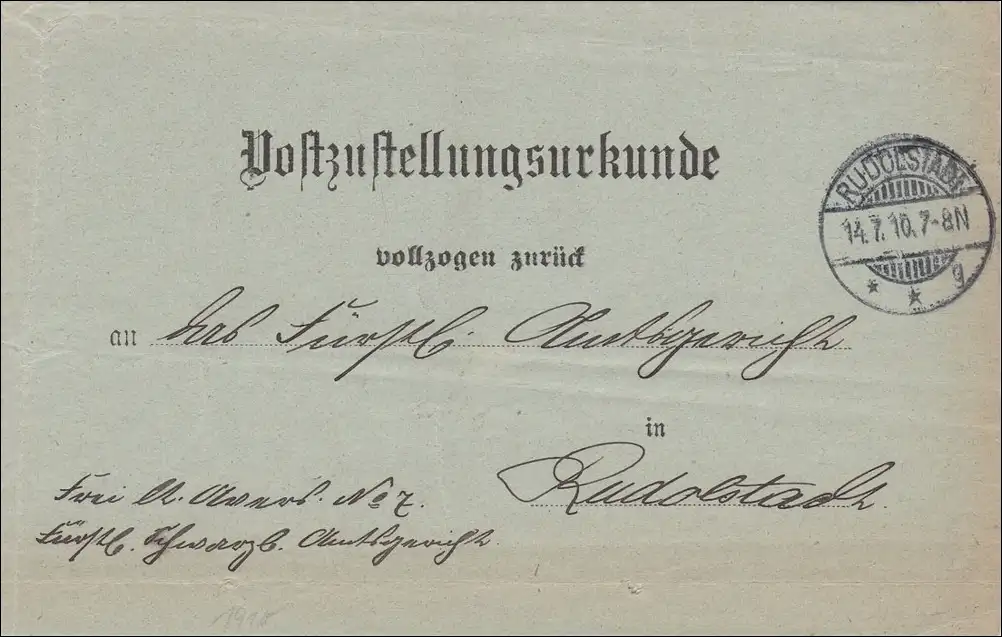 Postzustellungsurkunde
RUDOLSTADT
14.7.10.7-8N
* * g
vollzogen zurück
an das Fürstl. Amtsgericht
in
Rudolstadt.
Frei lt. Avers. No 7.
Fürstl. Schwarzb. Amtsgericht
1910